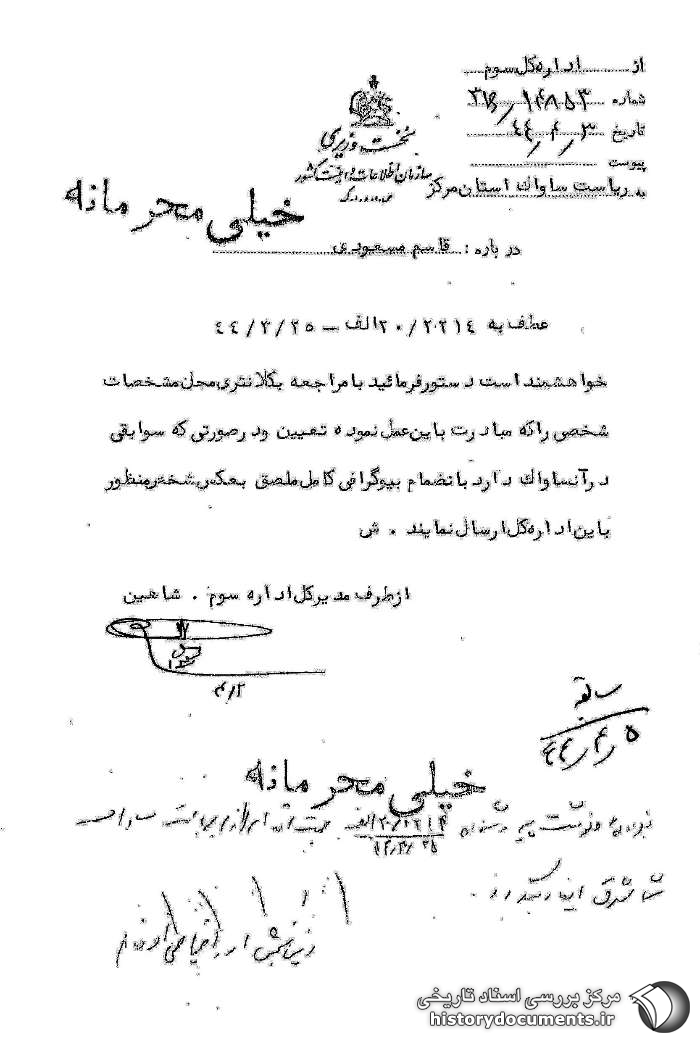 از اداره کل سوم
شماره ۳۱۶/۱۴۸۵۳
تاریخ ۴۴/۴/۳
پیوست
نخست وزیری
سازمان اطلاعات و امنیت کشور
به ریاست ساواک استان مرکز
خیلی محرمانه
درباره : قاسم مسعودی
عطف به ۲۰/۲۲۱۴الف - ۴۴/۳/۲۵
خواهشمند است دستور فرمائید با مراجعه بکلانتری محل مشخصات
شخصی را که مبادرت باین عمل نموده تعیین ودرصورتی که سوابقی
درآنساواک دارد بانضمام بیوگرافی کامل ملصق بعکس شخص منظور
باین اداره کل ارسال نمایند . ش
ازطرف مدیرکل اداره سوم . شاهین
۴/۲
سابقه
۴۴/۴/۵
خیلی محرمانه
۲۰/۲۲۱۴الف
۴۴/۳/۲۵
مرکز بررسی اسناد تاریخی
historydocuments.ir